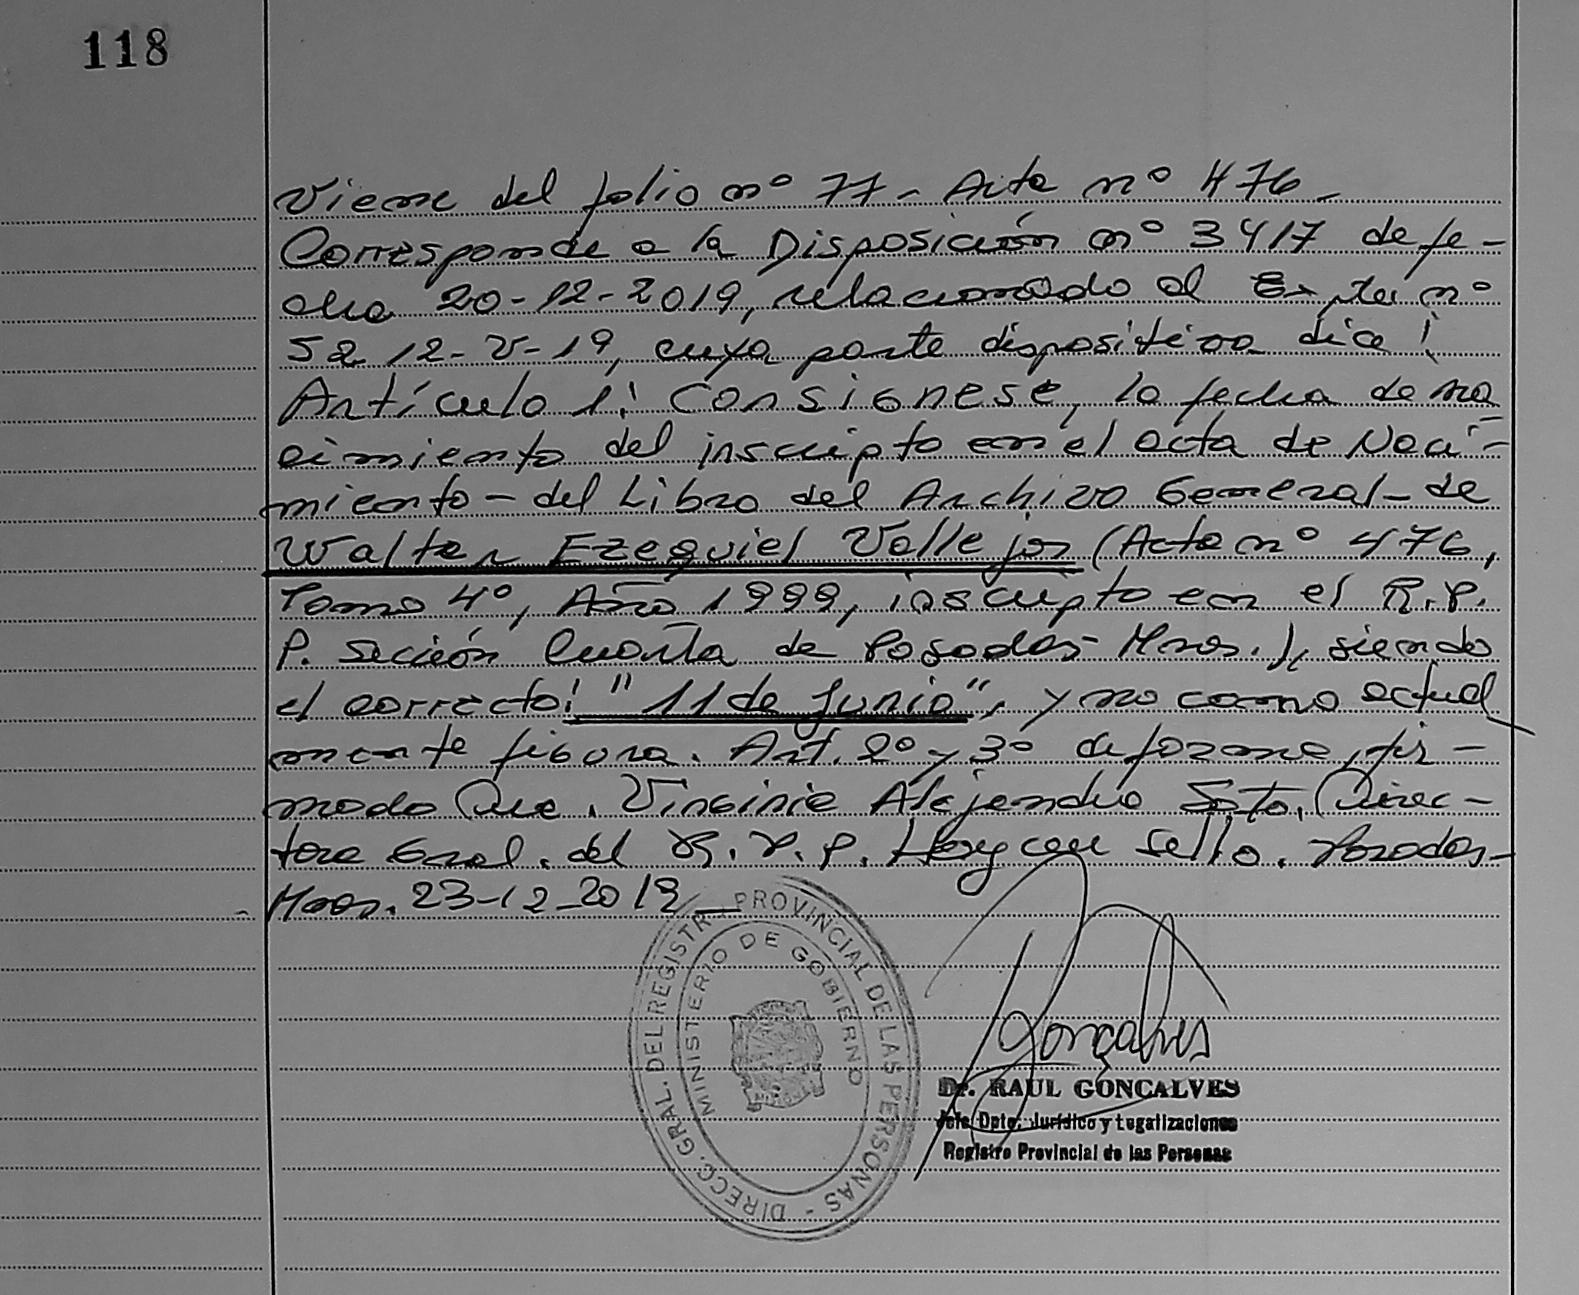 118
Viene del folio nº 77- Acta nº 476-
Corresponde a la Disposición nº 3417 de fe-
cha 20-12-2019, relacionado al Expte nº
5212-V-19, cuya parte dispositiva dice:
Artículo 1: Consignese, la fecha de na
cimiento del inscripto en el acta de Naci-
miento - del Libro del Archivo General - de
Walter Ezequiel Vallejos (Acta nº 476,
Tomo 4º, Año 1999, inscripto en el R.P.
P. Sección Cuarta de Posadas- Mnes.), siendo
el correcto: "11 de Junio", y no como actual
mente figura. Art. 2º y 3º de forma, fir-
mado Dra. Virginia Alejandra Soto, Direc-
tora Gral. del R.P.P. Hay un sello. Posadas-
Mnes. 23-12-2019
DIRECC. GRAL. DEL REGISTRO PROVINCIAL DE LAS PERSONAS -
MINISTERIO DE GOBIERNO
Gonçalves
Dr. RAUL GONCALVES
Jefe Dpto. Jurídico y Legalizaciones
Registro Provincial de las Personas